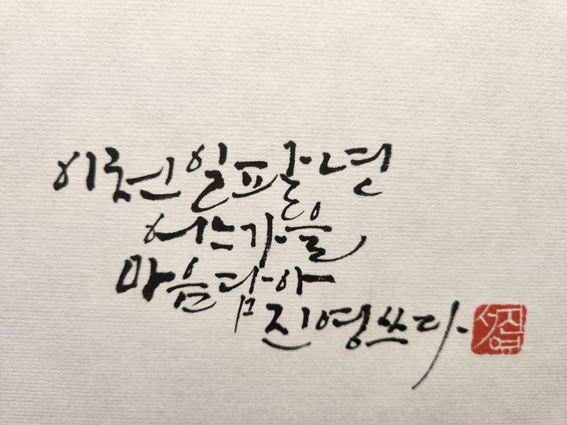 이천일팔년
어느가을
마음담아
진영쓰다.
서진영